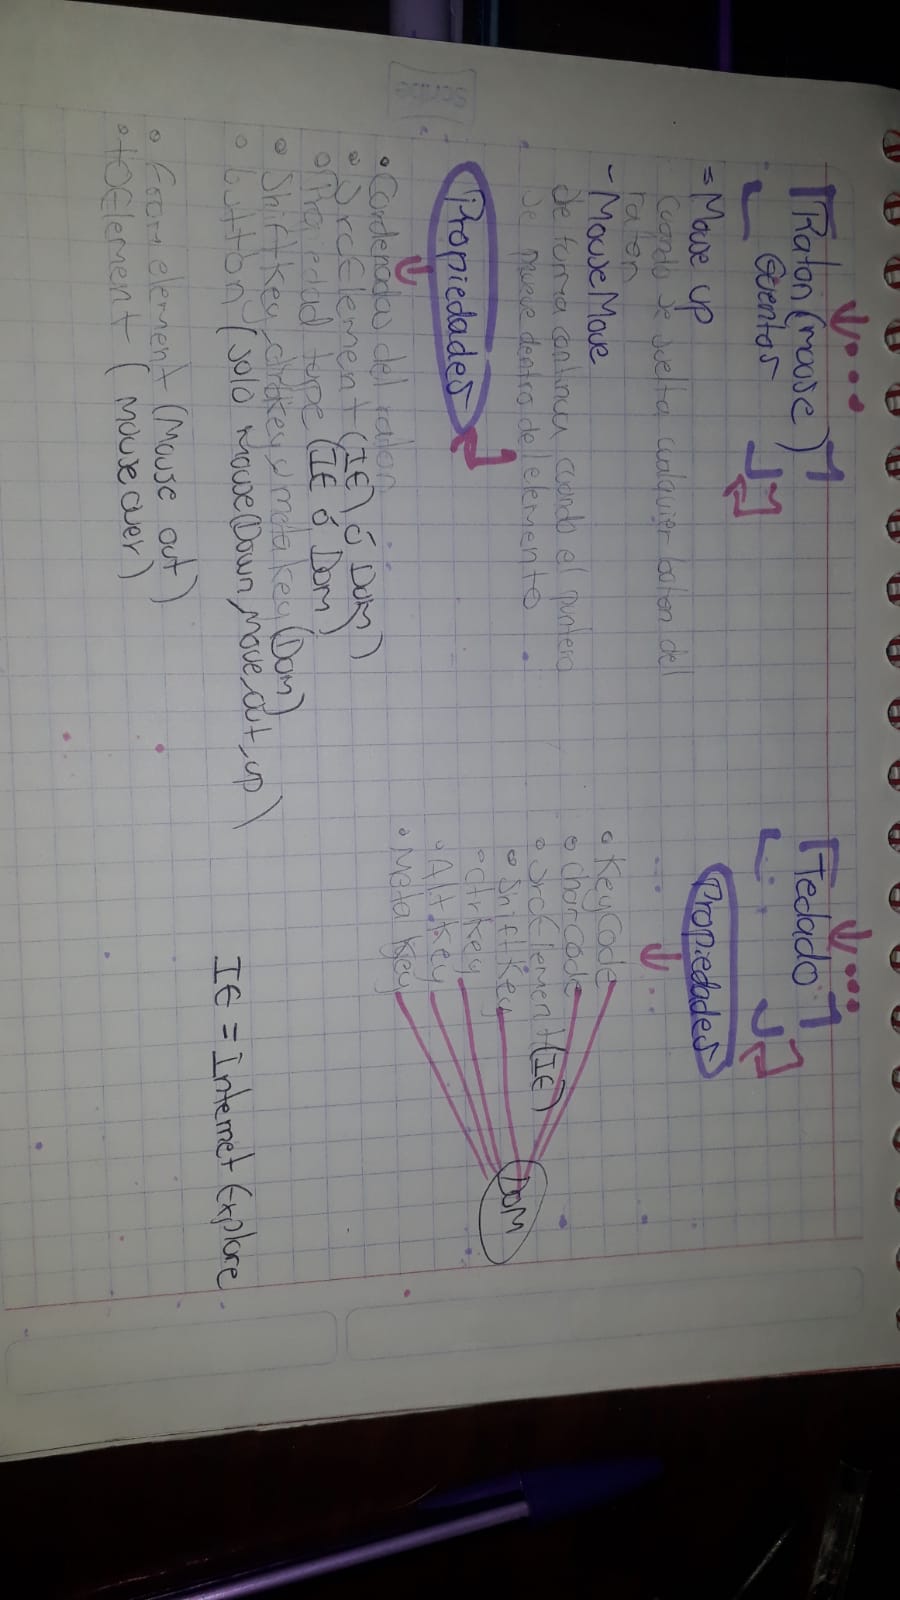 Raton (mouse)
Eventos
= Mouse up
Cuando se suelta cualquier boton del
raton
- Mouse Move
de forma continua cuando el puntero
se mueve dentro del elemento
Propiedades
• Cordenadas del raton
• SrcElement (IE) ó Dom)
• Propiedad type (IE ó Dom)
• Shiftkey, ctrlkey y meta key (Dom)
• button (solo mouse(Down, Move, out, up)
• from element (Mouse out)
• toElement (mouse over)
Teclado
Propiedades
• KeyCode
• charCode
• SrcElement (IE)
• Shift Key
• ctrKey
• Alt Key
• Meta Key
DOM
IE = internet Explore
Scribe